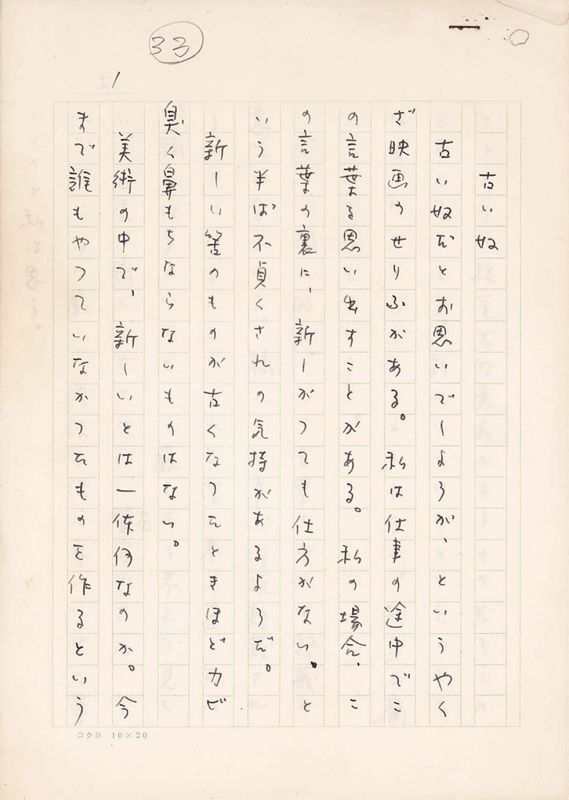 33
1
古い奴
古い奴だとお思いでしようが、というやく
ざ映画のせりふがある。私は仕事の途中でこ
の言葉を思い出すことがある。私の場合、こ
の言葉の裏に、新しがつても仕方がない。と
いう半ば不貞くされの気持があるようだ。
新しい筈のものが古くなつたときほどカビ
臭く鼻もちならないものはない。
美術の中で、新しいとは一体何なのか。今
まで誰もやつていなかつたものを作るという
コクヨ 10×20